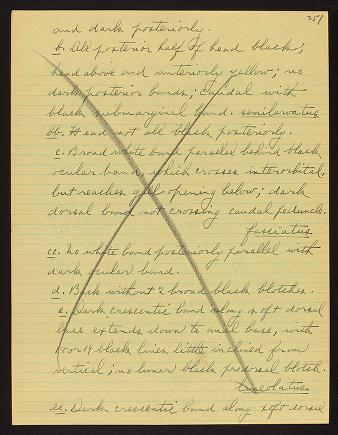 251
and dark posteriorly.
b. All posterior half of head black;
head above and anteriorly yellow; no
dark posterior bands; caudal with
black submarginal band. semilarvatus
bb. Head not all black posteriorly.
c. Broad white band parallel behind black
ocular band, which crosses interorbital,
but reaches gill opening below; dark
dorsal band not crossing caudal peduncle.
fasciatus
cc. No white band posteriorly parallel with
dark ocular band.
d. Back without 2 broad black blotches.
e. Dark crescentic band along soft dorsal
base extends down to anal base, with
18 or 19 black lines little inclined from
vertical; no lunar black predorsal blotch.
lineolatus
ee. Dark crescentic band along soft dorsal